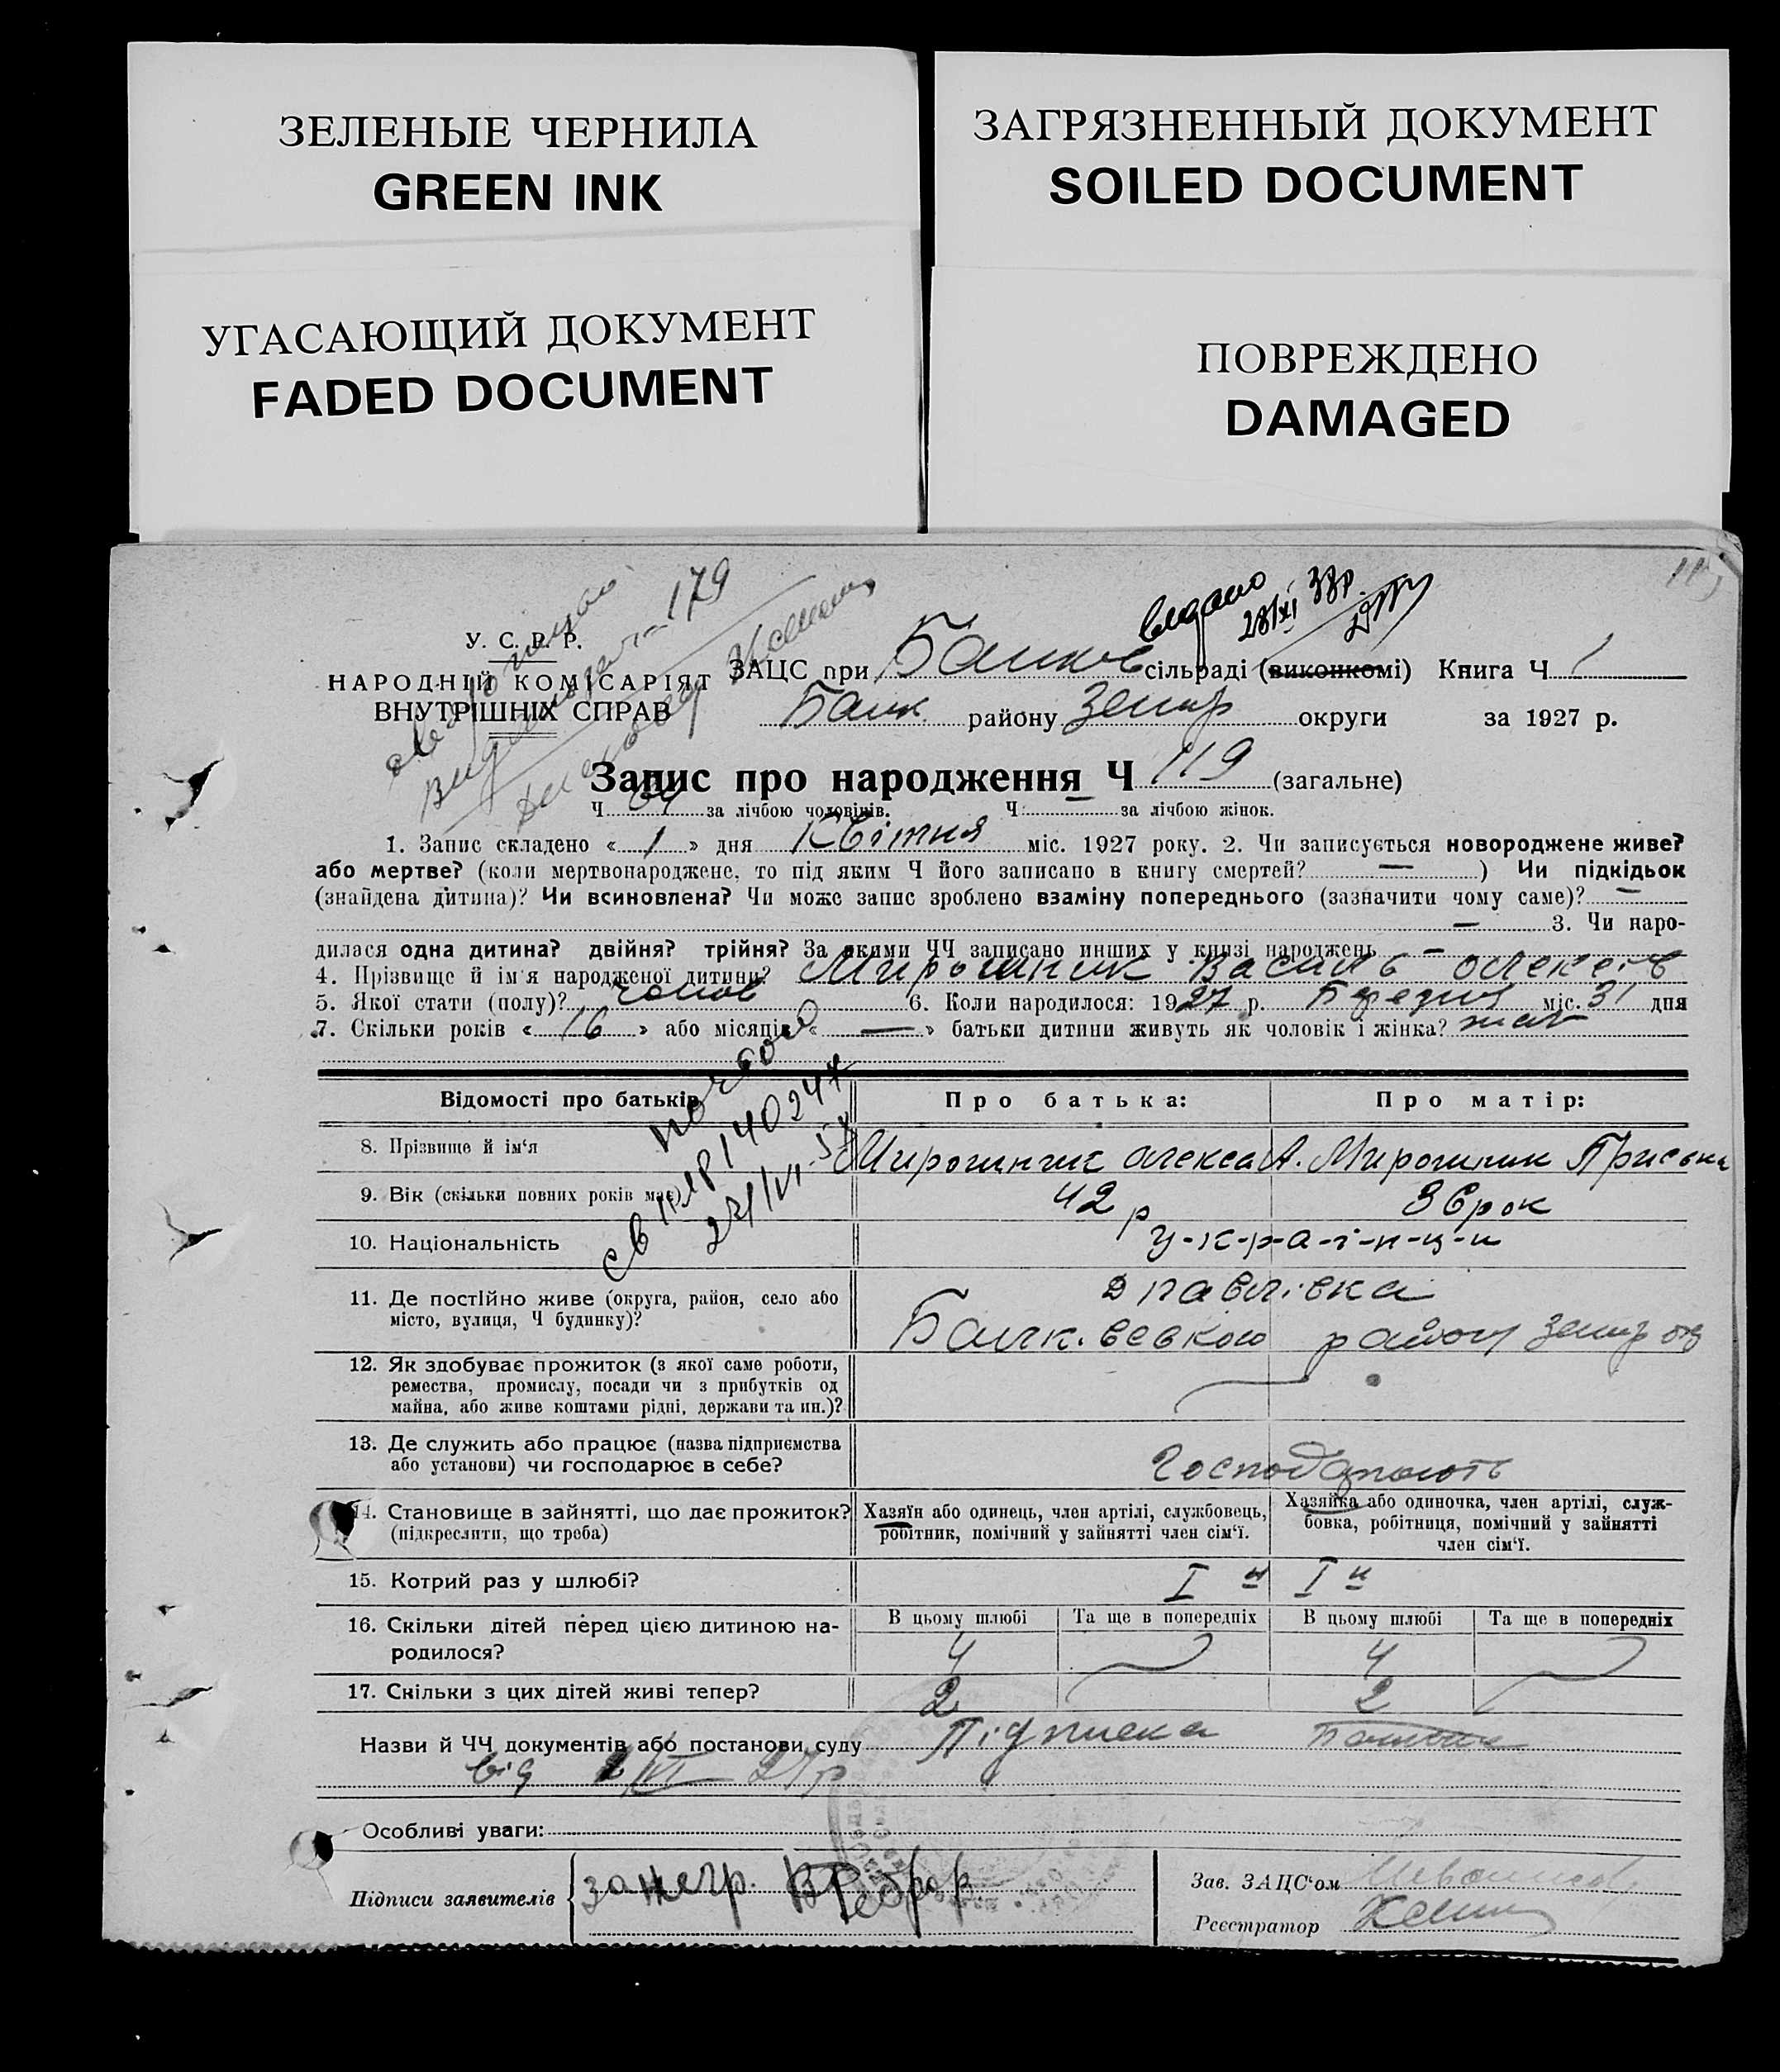 ЗЕЛЕНЫЕ ЧЕРНИЛА
GREEN INK
УГАСАЮЩИЙ ДОКУМЕНТ
FADED DOCUMENT
ЗАГРЯЗНЕННЫЙ ДОКУМЕНТ
SOILED DOCUMENT
ПОВРЕЖДЕНО
DAMAGED
видано
28/XI 33р.
179
У. С. Р. Р.
НАРОДНІЙ КОМІСАРІЯТ
ВНУТРІШНІХ СПРАВ
ЗАЦС при сільраді (виконкомі) Книга Ч 1
району округи за 1927 р.
Запис про народження Ч 119 (загальне)
Ч 64 за лічбою чоловіків. Ч — за лічбою жінок.
1. Запис складено « 1 » дня Квітня міс. 1927 року. 2. Чи записується новороджене живе?
або мертве? (коли мертвонароджене, то під яким Ч його записано в книгу смертей? — ) Чи підкідьок
(знайдена дитина)? Чи всиновлена? Чи може запис зроблено взаміну попереднього (зазначити чому саме)? —
— 3. Чи наро-
дилася одна дитина? двійня? трійня? За якими ЧЧ записано инших у книзі народжень —
4. Прізвище й ім'я народженої дитини? Мирошник Василь Олексеїв
5. Якої стати (полу)? чолов 6. Коли народилося: 1927 р. Березня міс. 31 дня
7. Скільки років « 16 » або місяців « — » батьки дитини живуть як чоловік і жінка?
Відомості про батьків Про батька: Про матір:
8. Прізвище й ім'я Мирошник Олекса А. Мирошник Приська
9. Вік (скільки повних років має) 42 р 36 рок
10. Національність у-к-р-а-ї-н-ц-и
11. Де постійно живе (округа, район, село або
місто, вулиця, Ч будинку)?
Павлівка
району
12. Як здобуває прожиток (з якої саме роботи,
ремества, промислу, посади чи з прибутків од
майна, або живе коштами рідні, держави та ин.)?
13. Де служить або працює (назва підприємства
або установи) чи господарює в себе?
Господарюють
14. Становище в зайнятті, що дає прожиток?
(підкреслити, що треба)
Хазяїн або одинець, член артілі, службовець,
робітник, помічний у зайнятті член сім'ї.
Хазяйка або одиночка, член артілі, служ-
бовка, робітниця, помічний у зайнятті
член сім'ї.
15. Котрий раз у шлюбі? I й I й
16. Скільки дітей перед цією дитиною на-
родилося?
В цьому шлюбі Та ще в попередніх В цьому шлюбі Та ще в попередніх
4 4
17. Скільки з цих дітей живі тепер? 2 2
Назви й ЧЧ документів або постанови суду Підписка
від 27р
Особливі уваги:
Підписи заявителів
Зав. ЗАЦС'ом
Реєстратор